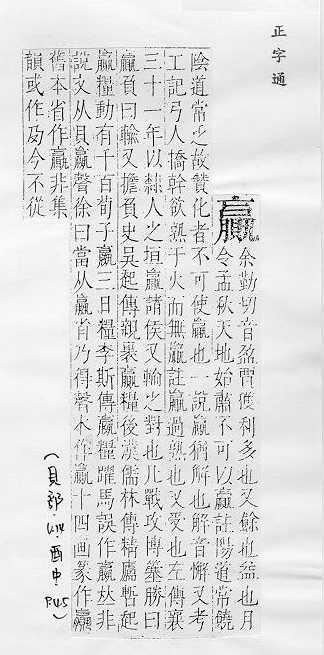 正字通
贏
余勤切音盈賈獲利多也又餘也益也月
令孟秋天地始肅不可以贏註陽道常饒
陰道常乏故贊化者不可使贏也一說贏猶解也解音懈又考
工記弓人撟幹欲熟于火而無贏註贏過熟也又受也左傳襄
三十一年以隸人之垣贏諸侯又輸之對也凡戰攻博簺勝曰
贏負曰輸又擔負史吳起傳親裹贏糧後漢儒林傳精廬暫起
贏糧動有千百荀子贏三日糧李斯傳贏糧躍馬誤作嬴𠀤非
說文从貝𣎆聲徐曰當从𣎆省乃得聲本作贏十四画篆作贏
舊本省作𧸐非集
韻或作夃今不從
(貝部·酉中 P.45)